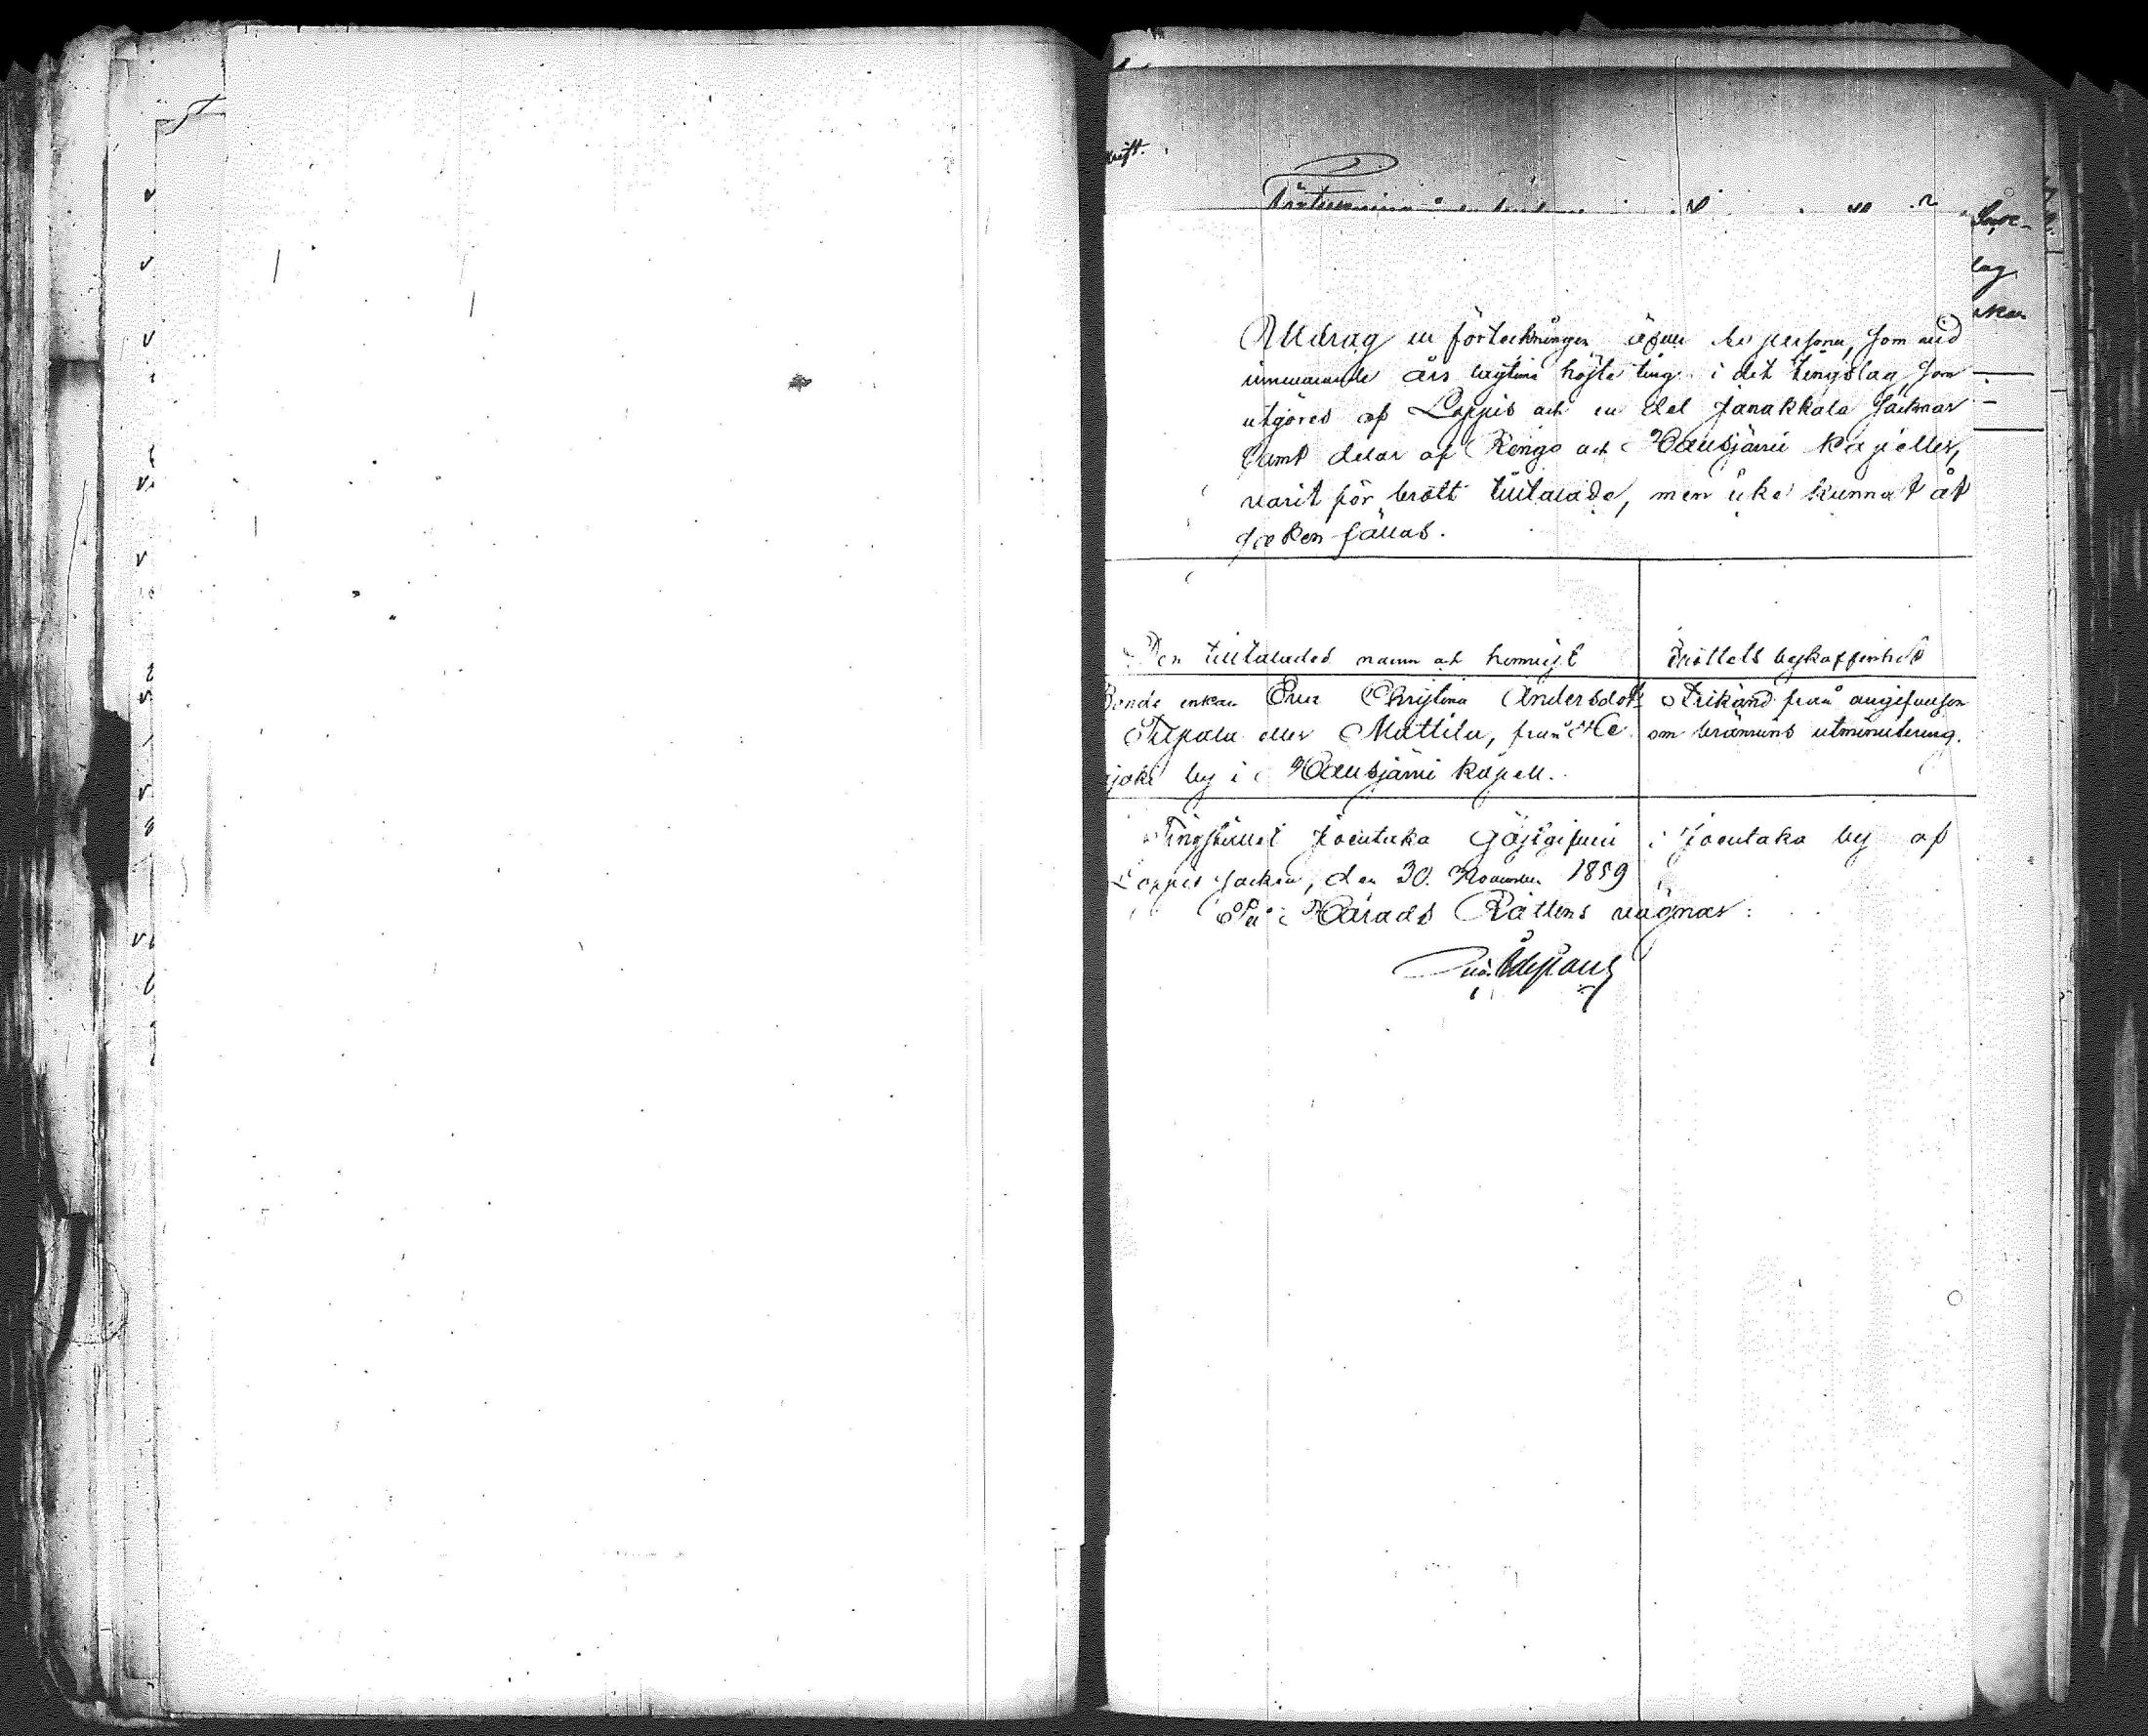 Utdrag ur förteckningen öfver de personer, som vid
innevarande års lagtima höste ting i det tingslag, som
utgöres af Loppis och en del Janakkala Socknar
samt delar af Rengo och Hausjärvi kapeller,
varit för brott tilltalade, men icke kunnat åt
saken fällas.
Den tilltalades namn och hemvist
Brottets beskaffenhet
Bonde enkan Eva Christina Andersdotter
Frikänd från angifvelsen
eller Mattila, från
om brännvins utminutering.
joki by i Hausjärvi kapell.
Tingstället Joentaka Gästgifveri i Joentaka by af
Loppis socken, den 30. November 1859
På Härads Rättens vägnar: